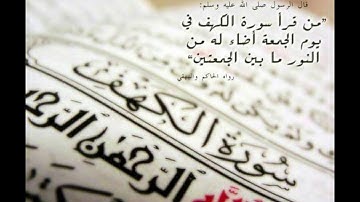 قال الرسول صلى الله عليه وسلم:
"من قرأ سورة الكهف في
يوم الجمعة أضاء له من
النور ما بين الجمعتين"
رواه الحاكم والبيهقي
سورة الكهف
الرحمن الرحيم